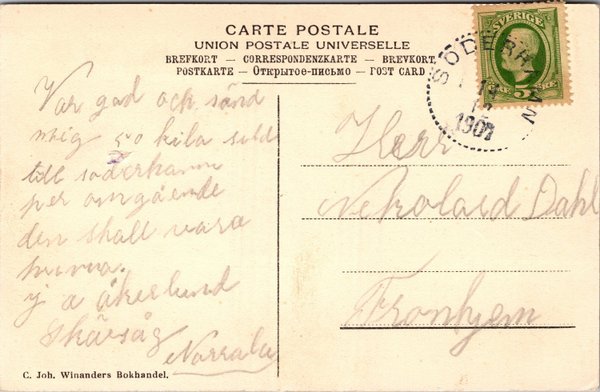 CARTE POSTALE
UNION POSTALE UNIVERSELLE
BREFKORT — CORRESPONDENZKARTE — BREVKORT
POSTKARTE — Открытое-письмо — POST CARD
SVERIGE
5
SÖDERHAMN
1901
Var god och sänd
mig 50 kilo
till söderhamn
per omgående
den skall vara
prima.
åkerlund
Skärsåg
Norrala
Herr
Dahl
Fronhjem
C. Joh. Winanders Bokhandel.